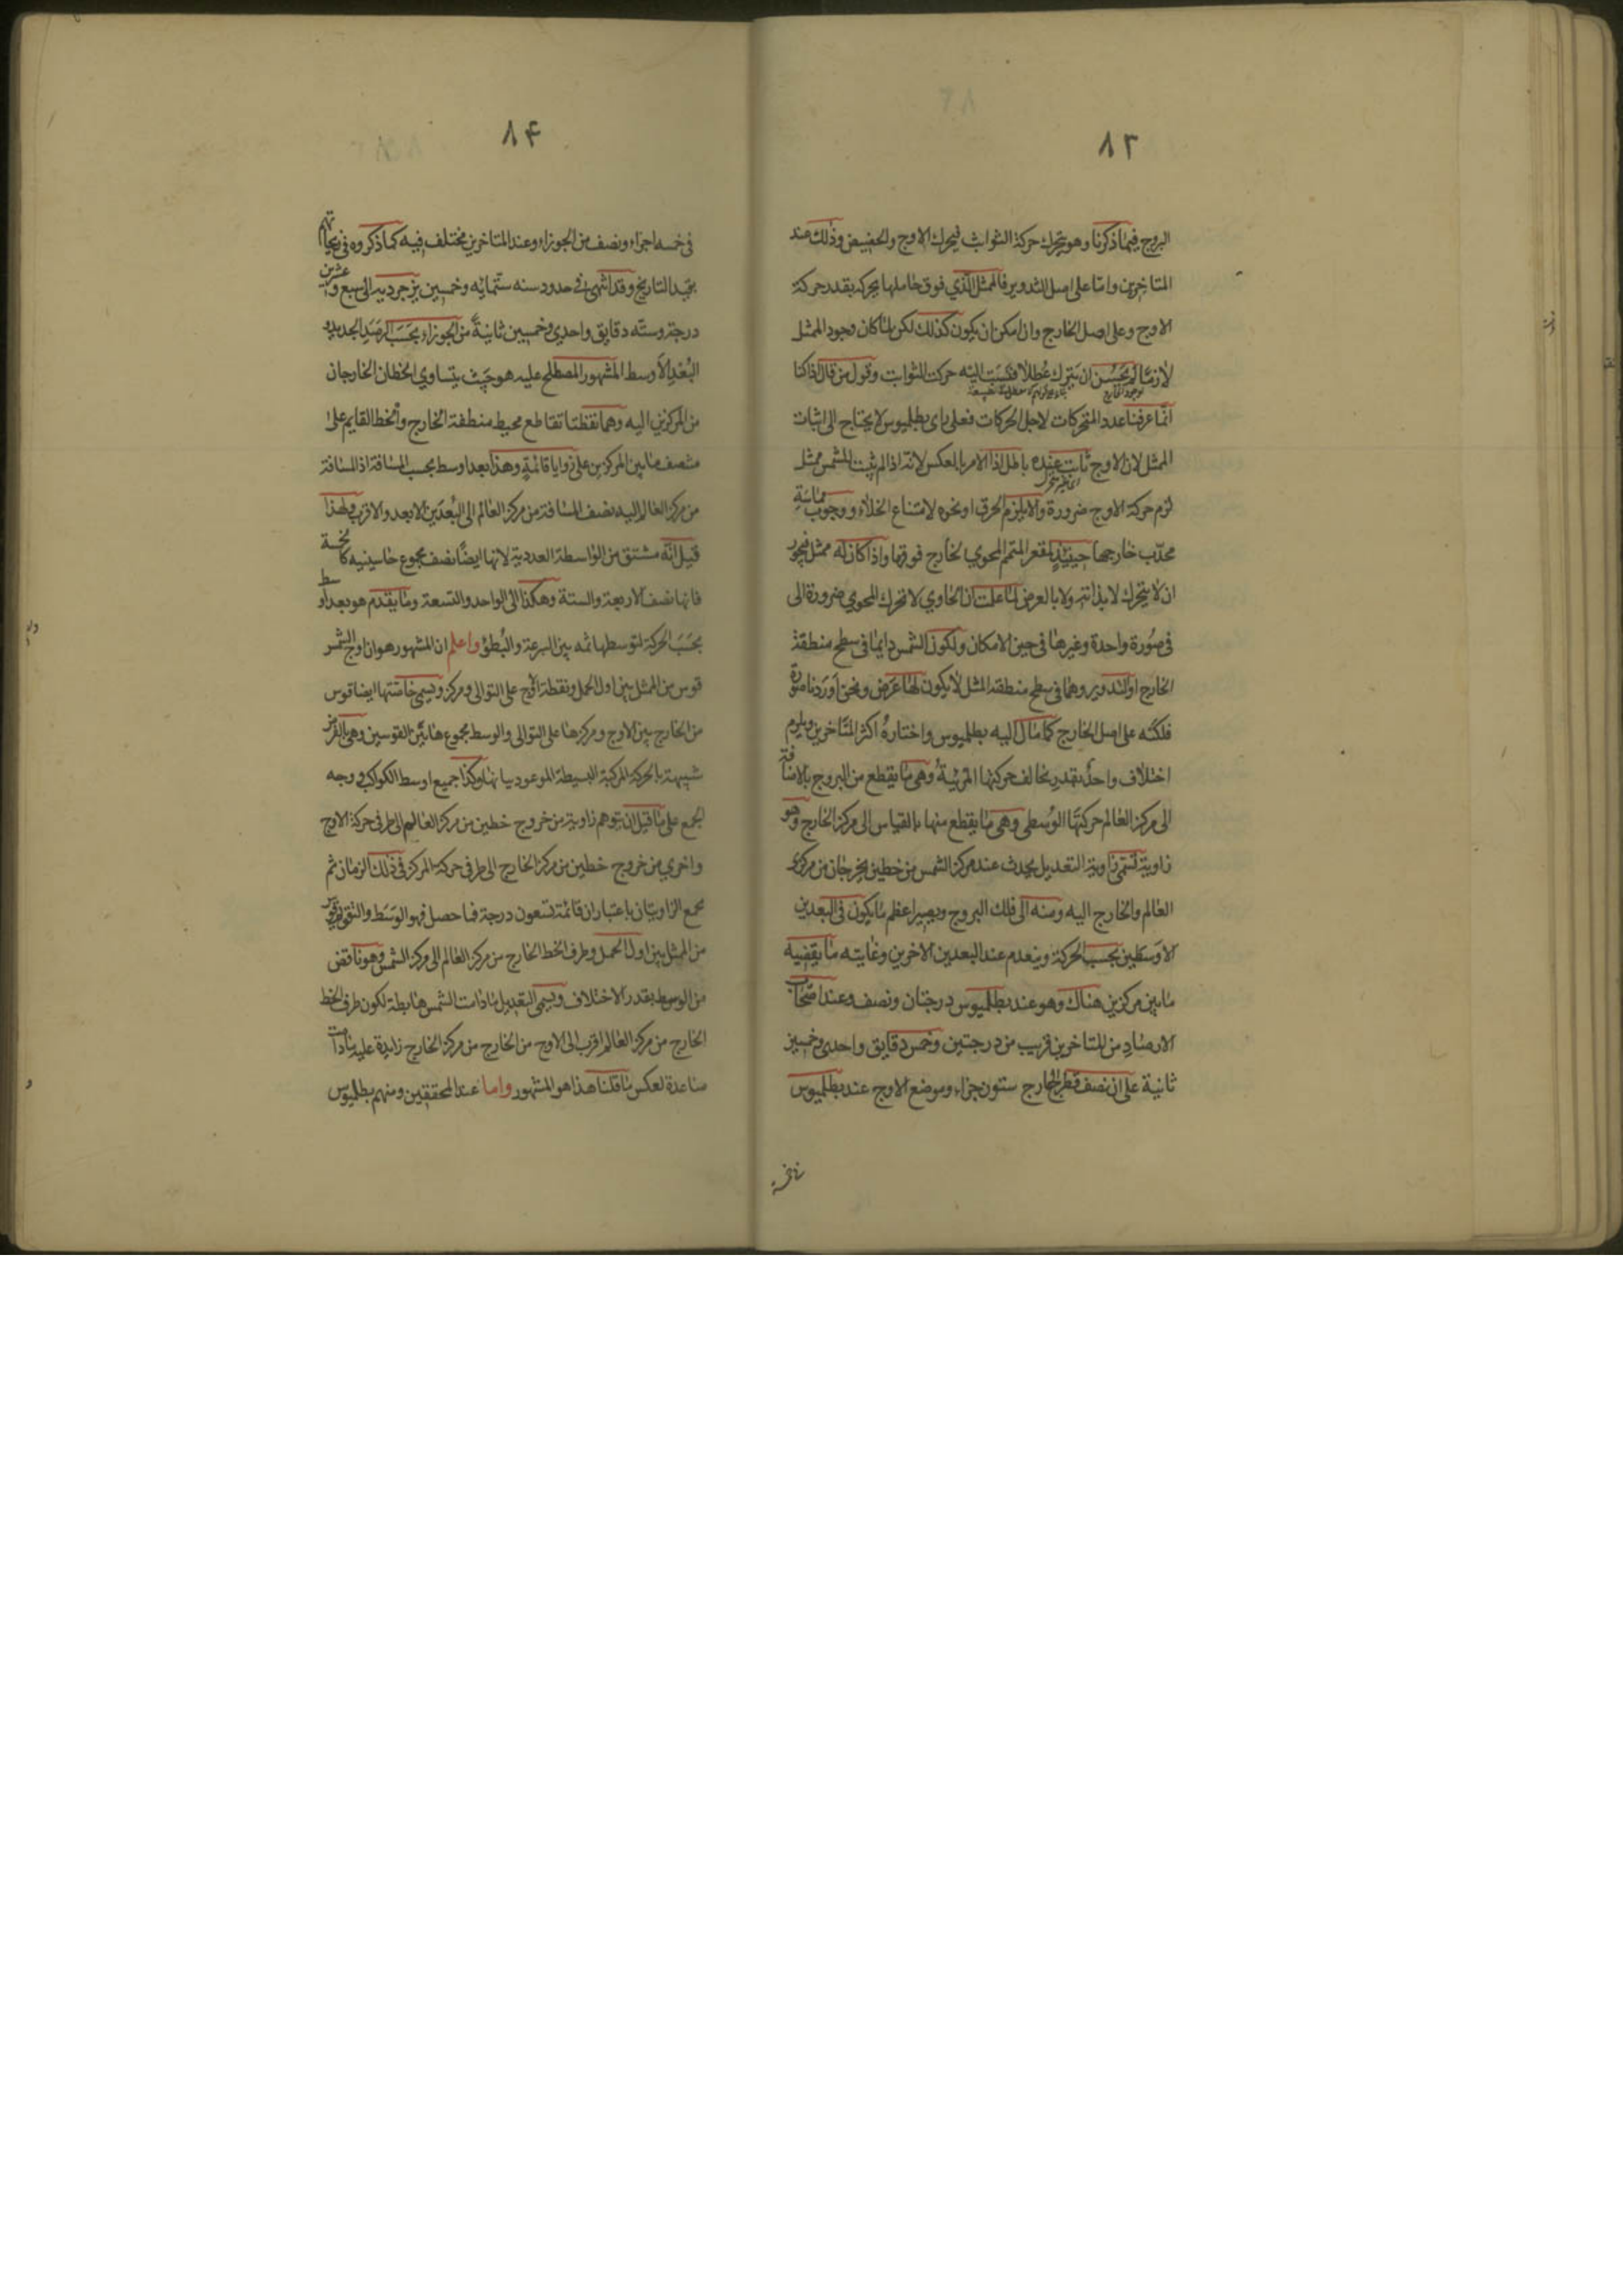 ٨٣
البروج فيما ذكرنا وهو يتحرك حركة الثوابت فيحرك الاوج والحضيض وذلك عند
المتاخرين واما على اصل التدوير فالممثل الذي فوق حاملها يحركه بقدر حركة
الاوج وعلى اصل الخارج وان امكن ان يكون كذلك لكن لما كان وجود الممثل
لازما لم يحسن ان يترك عُطلا فنسبت اليه حركت الثوابت وقول من قال اذا كنا
انما عرفنا عدد المتحركات لاجل الحركات فعلى راى بطلميوس لا يحتاج الى اثبات
الممثل لان الاوج ثابت عنده باطل اذ الامر بالعكس لانه اذا لم يثبت للشمس ممثل
لزم حركة الاوج ضرورة والا يلزم الخرق او نحوه لامتناع الخلاء ووجوب مماسة
محدّب خارجها حينئذٍ لمقعر المتمم المحوي لخارج فوقها واذا كان له ممثل فيجوز
ان لا يتحرك لا بذاته ولا بالعرض لما علمت ان الحاوي لا يحرك المحوي ضرورة الى
فى صورة واحدة وغيرها فى حيز الامكان ولكون الشمس دايما فى سطح منطقة
الخارج او التدوير وهما فى سطح منطقه الممثل لا يكون لها عرض ونحن اوردنا صورة
فلكه على اصل الخارج كما مال اليه بطلميوس واختاره اكثر المتاخرين ويلزم
اختلاف واحد بقدر يخالف حركتها المرئيةُ وهى ما يقطع من البروج بالاضافة
الى مركز العالم حركتها الوُسطى وهى ما يقطع منها بالقياس الى مركز الخارج وهو
زاوية تسمى زاوية التعديل يحدث عند مركز الشمس من خطين يخرجان من مركزى
العالم والخارج اليه ومنه الى فلك البروج ويصير اعظم ما يكون فى البعدين
الاوسطين بحسب الحركة وينعدم عند البعدين الاخرين وغايته ما يقتضيه
ما بين مركزين هناك وهو عند بطلميوس درجتان ونصف وعند اصحاب
الارصاد من المتاخرين قريب من درجتين وخمس دقايق واحدى وخمسين
ثانية على ان نصف قطر الخارج ستون جزاء وموضع الاوج عند بطلميوس
٨۴
فى خمسه اجزاء ونصف من الجوزاء وعند المتاخرين مختلف فيه كما ذكروه فى زيجاتهم
بقيد التاريخ وقد انتهى فى حدود سنه ستمائه وخمسين يزجرديه الى سبع وعشرين
درجة وسته دقايق واحدي وخمسين ثانيةً من الجوزاء بحسَب الرصَد الجديد و
البُعد الاَوسط المشهور المصطلح عليه هو حيث يتساوي الخطان الخارجان
من المركزين اليه وهما نقطتا تقاطع محيط منطقة الخارج والخط القايم على
منتصف ما بين المركزين على زوايا قائمةٍ وهذا بعد اوسط بحسب المسافة اذ المسافة
من مركز العالم اليه نصف المسافة من مركز العالم الى البُعدَين الابعد والاقرب ولهذا
قيل انّه مشتق من الواسطة العددية لانها ايضًا نصف مجموع حاشيتيه كالخمسة
فانها نصف الاربعة والستة وهكذا الى الواحد والتسعة وما يقدم هو بعد اوسط
بحسَب الحركة لتوسطها ثمه بين السرعة والبُطؤ واعلم ان المشهور هو ان اوج الشمس
قوس من الممثل بين اول الحمل ونقطة الاوج على التوالى ومركزه ويسمى خاصّتها ايضا قوس
من الخارج بين الاوج ومركزها على التوالى والوسط مجموع هاتين القوسين وهى بالفرض
شبيهة بالحركة المركبة البسيطة الموعود بيانها وكذا جميع اوسط الكواكب ووجه
الجمع على ما قيل ان يتوهم زاوية من خروج خطين من مركز العالم الى طرفى حركة الاوج
واخري من خروج خطين من مركز الخارج الى طرفى حركة المركز فى ذلك الزمان ثم
يجمع الزاويتان باعتبار ان قائمة تسعون درجة فما حصل فهو الوَسَط والتقويم قوس
من الممثل بين اول الحمل وطرف الخط الخارج من مركز العالم الى مركز الشمس وهو ناقص
من الوسط بقدر الاختلاف ويسمى التعديل ما دامت الشمس هابطة لكون طرف الخط
الخارج من مركز العالم اقرب الى الاوج من الخارج من مركز الخارج زايدة عليه ما دامت
صاعدة لعكس ما قلنا هذا هو المشهور واما عند المحققين ومنهم بطلميوس